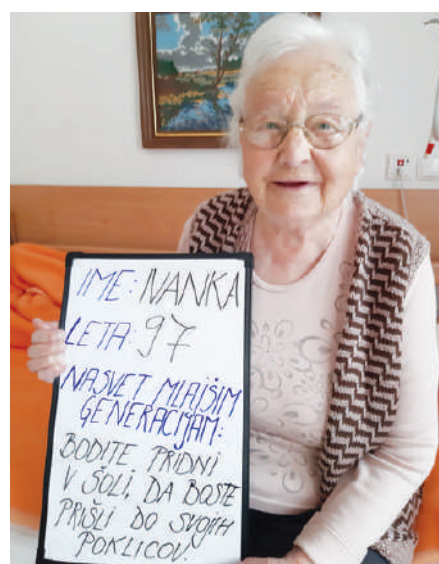 IME: NANKA
LETA: 97
NASVET MLAJŠIM
GENERACIJAM:
BODITE PRIDNI
V ŠOLI, DA BOSTE
PRIŠLI DO SVOJIH
POKLICOV.